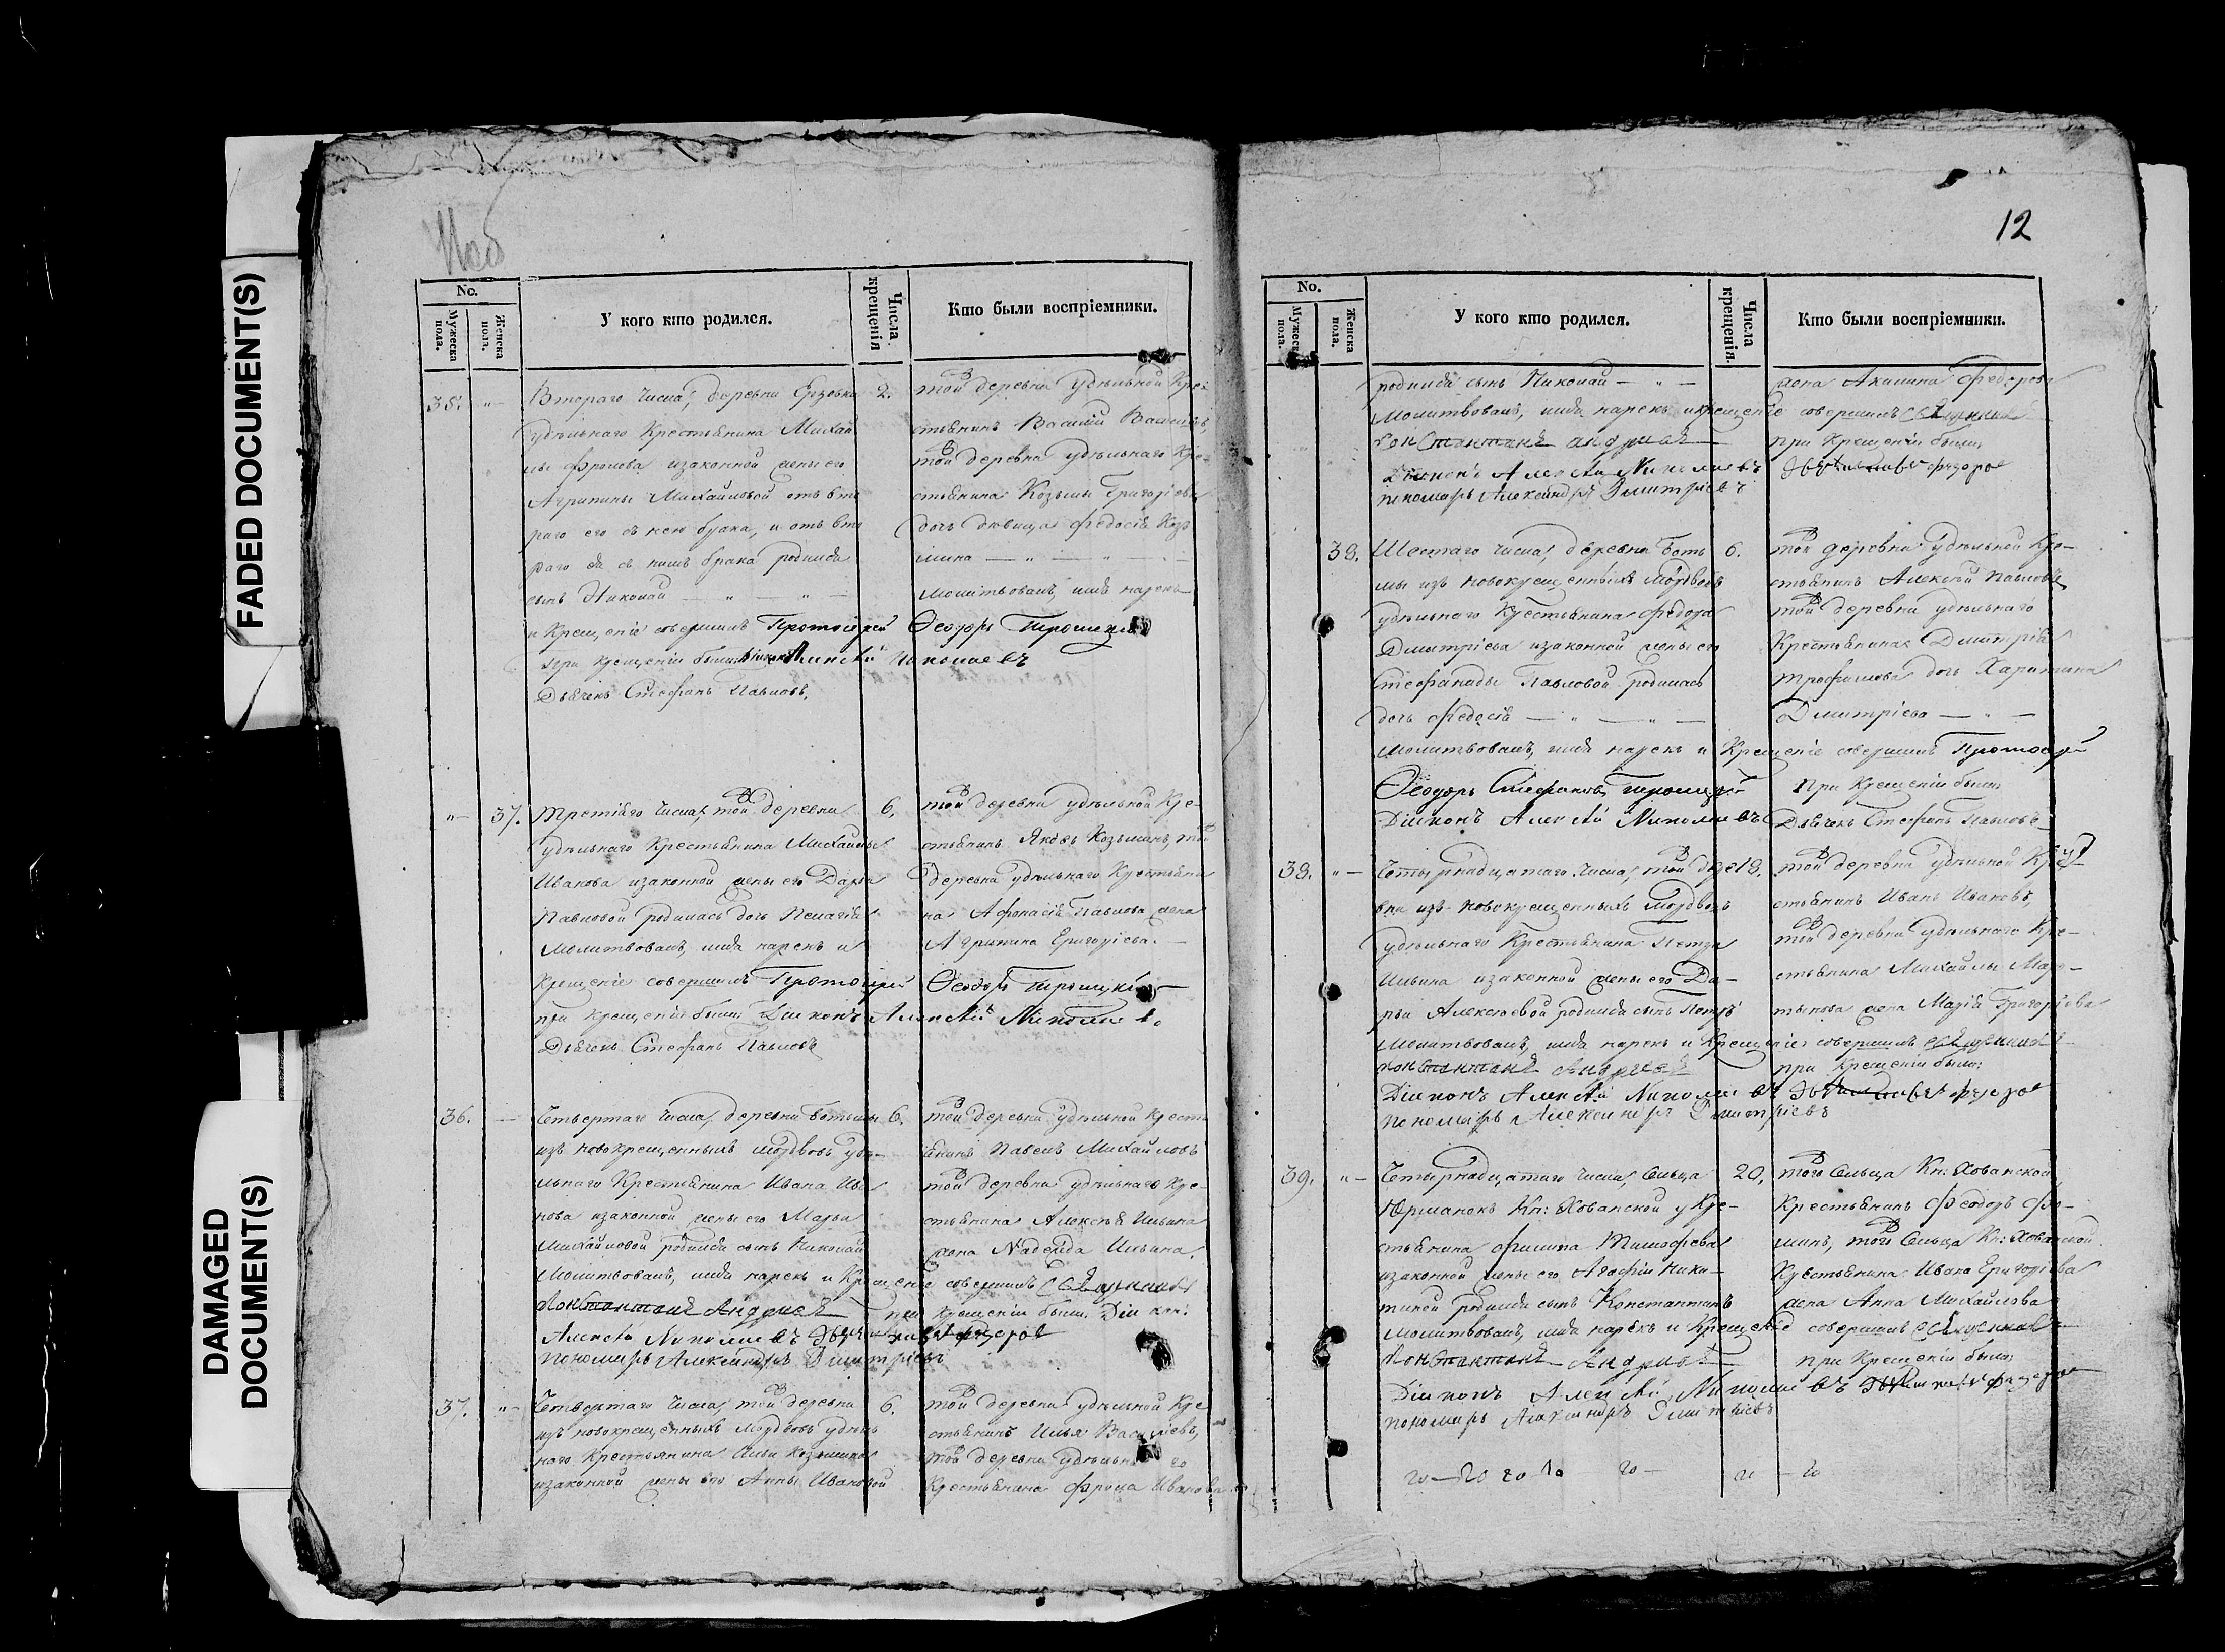 FADED DOCUMENT(S)
DAMAGED
DOCUMENT(S)
No.
Мужеска
пола.
Женска
пола.
У кого кто родился.
Числа
крещенія
Кто были воспріемники.
35. "
Втораго числа, деревни
удѣльнаго Крестьянина Михай
лы Фролова изаконной жены его
Агрипины Михайловой отъ вто
раго его съ нею брака, и отъ вто
раго ея съ нимъ брака родился
сынъ Николай — " — " —
и Крещеніе совершилъ Протоіерей
при крещеніи были: Діаконъ Алексѣй Николаевъ
Дьячекъ Стефанъ Павловъ.
2.
той деревни удѣльной Кре-
стьянинъ Василій
той деревни удѣльнаго Кре-
стьянина Козьмы Григорьева
дочь дѣвица Федосія Коз
мина — " — " —
молитвовалъ, имя нарекъ
Ѳеодоръ
" — 37.
Третіяго числа, той деревни
удѣльнаго Крестьянина Михайлы
Иванова изаконной жены его Дарьи
Павловой родилась дочь Пелагія
молитвовалъ, имя нарекъ и
Крещеніе совершилъ Протоіерей
при Крещеніи были: Діаконъ Алексѣй
Дьячекъ Стефанъ Павловъ
6.
той деревни удѣльной Кре-
стьянинъ Яковъ Козьминъ, той
деревни удѣльнаго Крестьяни
на Афонасія Павлова жена
Агрипина Григорьева. —
Ѳеодоръ
36. —
Четвертаго числа, деревни
изъ новокрещенныхъ мордвовъ удѣ-
льнаго Крестьянина Ивана Ива
нова изаконной жены его Марьи
Михайловой родился сынъ Николай
молитвовалъ, имя нарекъ и Крещеніе совершилъ Священникъ
Константинъ Андреевъ при крещеніи были: Діакон:
Алексѣй Николаевъ
Пономарь Александръ Димитріевъ
6.
той деревни удѣльной Крестъ
янинъ Павелъ Михайловъ
той деревни удѣльнаго Кре-
стьянина Алексѣя Ильина
жена Надежда Ильина.
37. "
Четвертаго числа, той деревни
изъ новокрещенныхъ мордвовъ удѣль
наго Крестьянина Ильи Козьмина
изаконной жены его Анны Ивановой
6.
той деревни удѣльной Кре
стьянинъ Илья Васильевъ,
той деревни удѣльнаго
Крестьянина Фрола Иванова
12
No.
Мужеска
пола.
Женска
пола.
У кого кто родился.
Числа
крещенія.
Кто были воспріемники.
родился сынъ Николай — " —
молитвовалъ, имя нарекъ и крещеніе совершилъ Священникъ
Константинъ Андреевъ
Діаконъ Алексѣй Николаевъ
пономарь Александръ Димитріевъ
жена Акилина Федорова
при Крещеніи были:
38.
Шестаго числа, деревни Боть
мы изъ новокрещенныхъ мордвовъ
удѣльнаго Крестьянина Федора
Дмитріева изаконной жены его
Стефаниды Павловой родилась
дочь Федосія — " — " —
молитвовалъ, имя нарекъ и Крещеніе совершилъ Протоіерей
Ѳеодоръ Стефановъ
Діаконъ Алексѣй Николаевъ
6.
той деревни удѣльной Кре-
стьянинъ Алексѣй Павловъ
той деревни удѣльнаго
Крестьянина Дмитрія
Трофимова дочь Харитина
Дмитріева — " —
При Крещеніи были:
Дьячекъ Стефанъ Павловъ
38. " —
Четырнадцатаго числа, той дере
вни изъ новокрещенныхъ мордвовъ
удѣльнаго Крестьянина Петра
Ильина изаконной жены его Да-
рьи Алексѣевой родился сынъ Петръ
молитвовалъ, имя нарекъ и Крещеніе совершилъ Священникъ
Константинъ Андреевъ
Діаконъ Алексѣй Николаевъ
пономарь Александръ Димитріевъ
18.
той деревни удѣльной Кре-
стьянинъ Иванъ Ивановъ,
той деревни удѣльнаго Кре-
стьянина Михайлы Мар-
тынова жена Марія Григорьева
при Крещеніи были:
39. " —
Четырнадцатаго числа, Сельца
Юрманокъ Кн: Хованской у Кре-
стьянина Филипа Тимофеева
изаконной жены его Агафіи Ники-
тиной родился сынъ Константинъ
молитвовалъ, имя нарекъ и Крещеніе совершилъ Священникъ
Константинъ Андреевъ
Діаконъ Алексѣй Николаевъ
пономарь Александръ Димитріевъ
20,
того Сельца Кн: Хованской
Крестьянинъ Феодоръ Фо-
минъ, того Сельца Кн: Хованской
Крестьянина Ивана Григорьева
жена Анна Михайлова
при Крещеніи были: